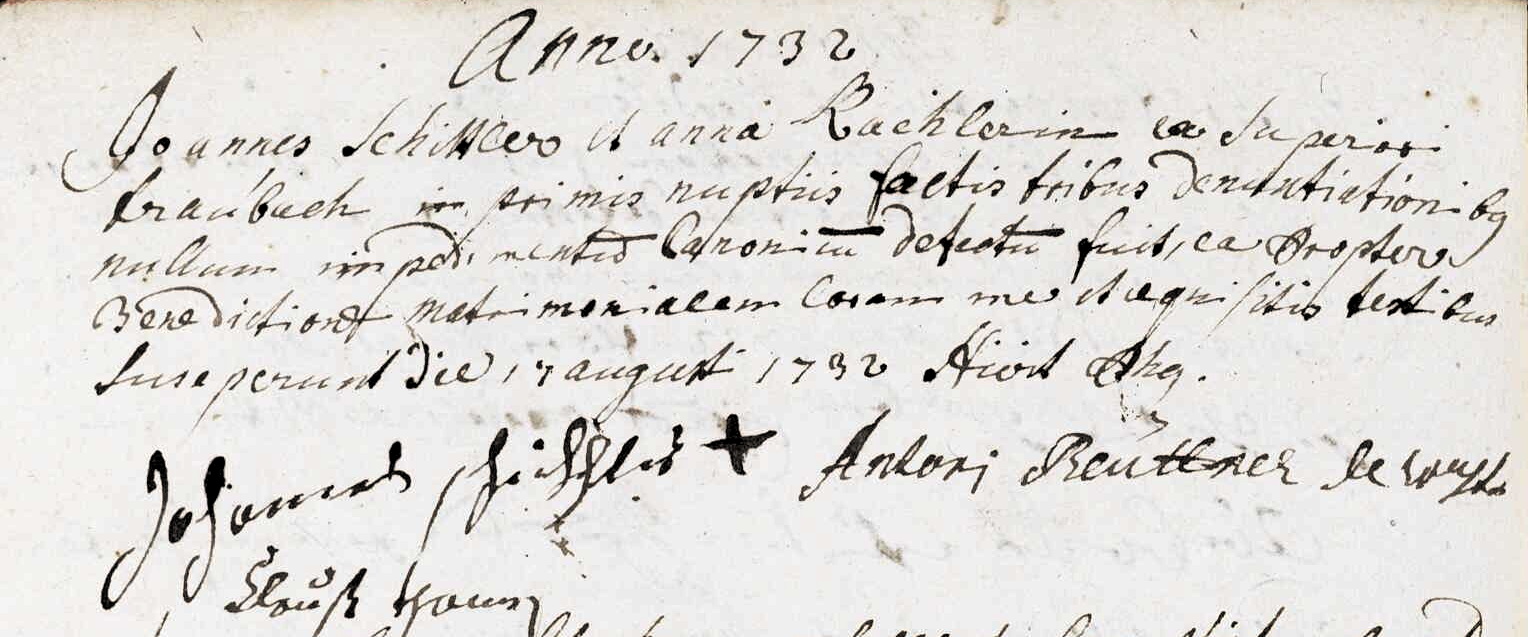 Anno 1732
Joannes Schittler et anna Kachlerin ex Superiori
traúbach in primis nuptiis factis tribus denuntiationibq
nullum impedimentū Canonicū detectū fuit, ea Propter
Benedictionē matrimonialem Coram me et requisitis testibus
Susceperunt die 17 augusti 1732 Hirt Phq.
Johannes + Antoni Reüttner de
Clauß